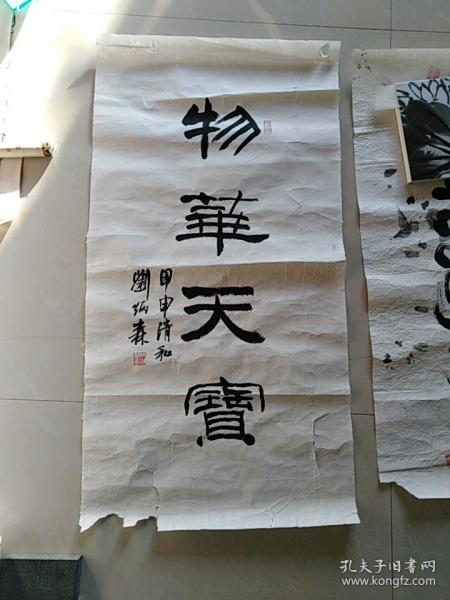 物華天寶
甲申清和
劉炳森
孔夫子旧书网
www.kongfz.com